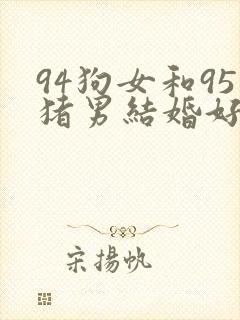 94狗女和95
猪男結婚好
宋揚帆